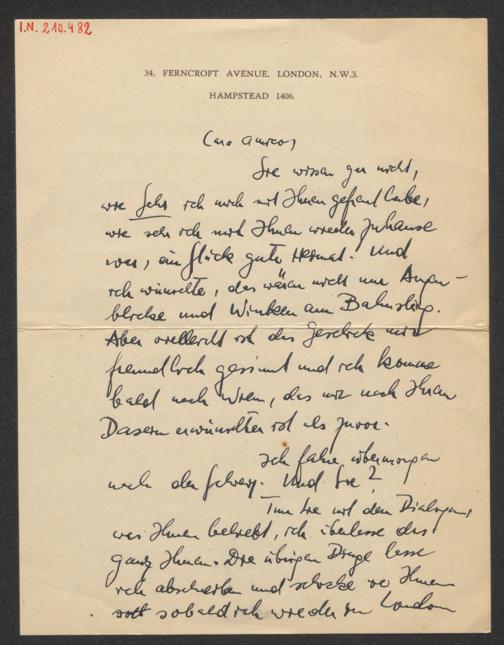 I.N. 210.482
34, FERNCROFT AVENUE, LONDON, N.W.3.
HAMPSTEAD 1406.
Caro amico,
Sie wissen gar nicht,
wie sehr ich mich mit Ihnen gefreut habe,
wie sehr ich mit Ihnen wieder zuhause
war, ein Stück gute Heimat! Und
ich wünschte, das wären nicht nur Augen-
blicke und Winken am Bahnsteig.
Aber vielleicht ist das Geschick mir
freundlich gesinnt und ich komme
bald nach Wien, das mir nach Ihrem
Dasein erwünschter ist als zuvor.
Ich fahre übermorgen
nach der Schweiz. Und Sie?
Tun Sie mit den Dialogen,
was Ihnen beliebt, ich überlasse das
ganz Ihnen. Die übrigen Dinge lasse
ich abschreiben und schicke sie Ihnen
sobald ich wieder in London